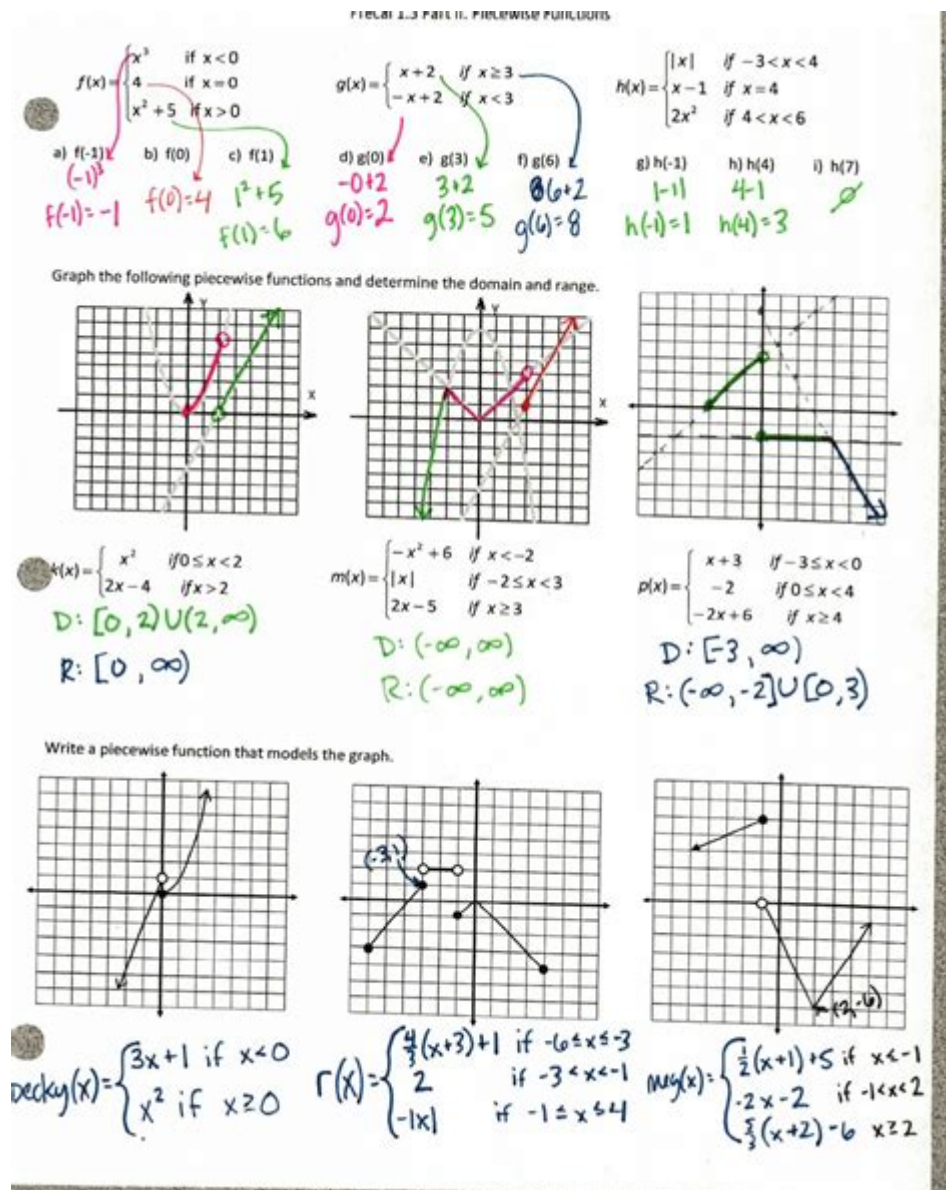 PreCal 1.3 Part II: Piecewise Functions
f(x)={x³ if x<0
4 if x=0
x²+5 if x>0
g(x)={x+2, if x≥3
-x+2 if x<3
h(x)={|x| if -3<x<4
x-1 if x=4
2x² if 4<x<6
a) f(-1) b) f(0) c) f(1) d) g(0) e) g(3) f) g(6) g) h(-1) h) h(4) i) h(7)
(-1)³
f(-1)=-1
f(0)=4
1²+5
f(1)=6
-0+2
g(0)=2
3+2
g(3)=5
6+2
g(6)=8
|-1|
h(-1)=1
4-1
h(4)=3
∅
Graph the following piecewise functions and determine the domain and range.
Y
X
Y
X
k(x)={x² if 0≤x<2
2x-4 if x>2
D: [0,2)U(2,∞)
R: [0,∞)
m(x)={-x²+6 if x<-2
|x| if -2≤x<3
2x-5 if x≥3
D: (-∞,∞)
R: (-∞,∞)
p(x)={x+3 if -3≤x<0
-2 if 0≤x<4
-2x+6 if x≥4
D: [-3,∞)
R: (-∞,-2]U[0,3)
Write a piecewise function that models the graph.
(-3,1)
(2,-6)
becky(x)={3x+1 if x<0
x² if x≥0
r(x)={4/3(x+3)+1 if -6≤x≤-3
2 if -3<x<-1
-|x| if -1≤x≤4
meg(x)={1/2(x+1)+5 if x≤-1
-2x-2 if -1<x<2
5/3(x+2)-6 x≥2